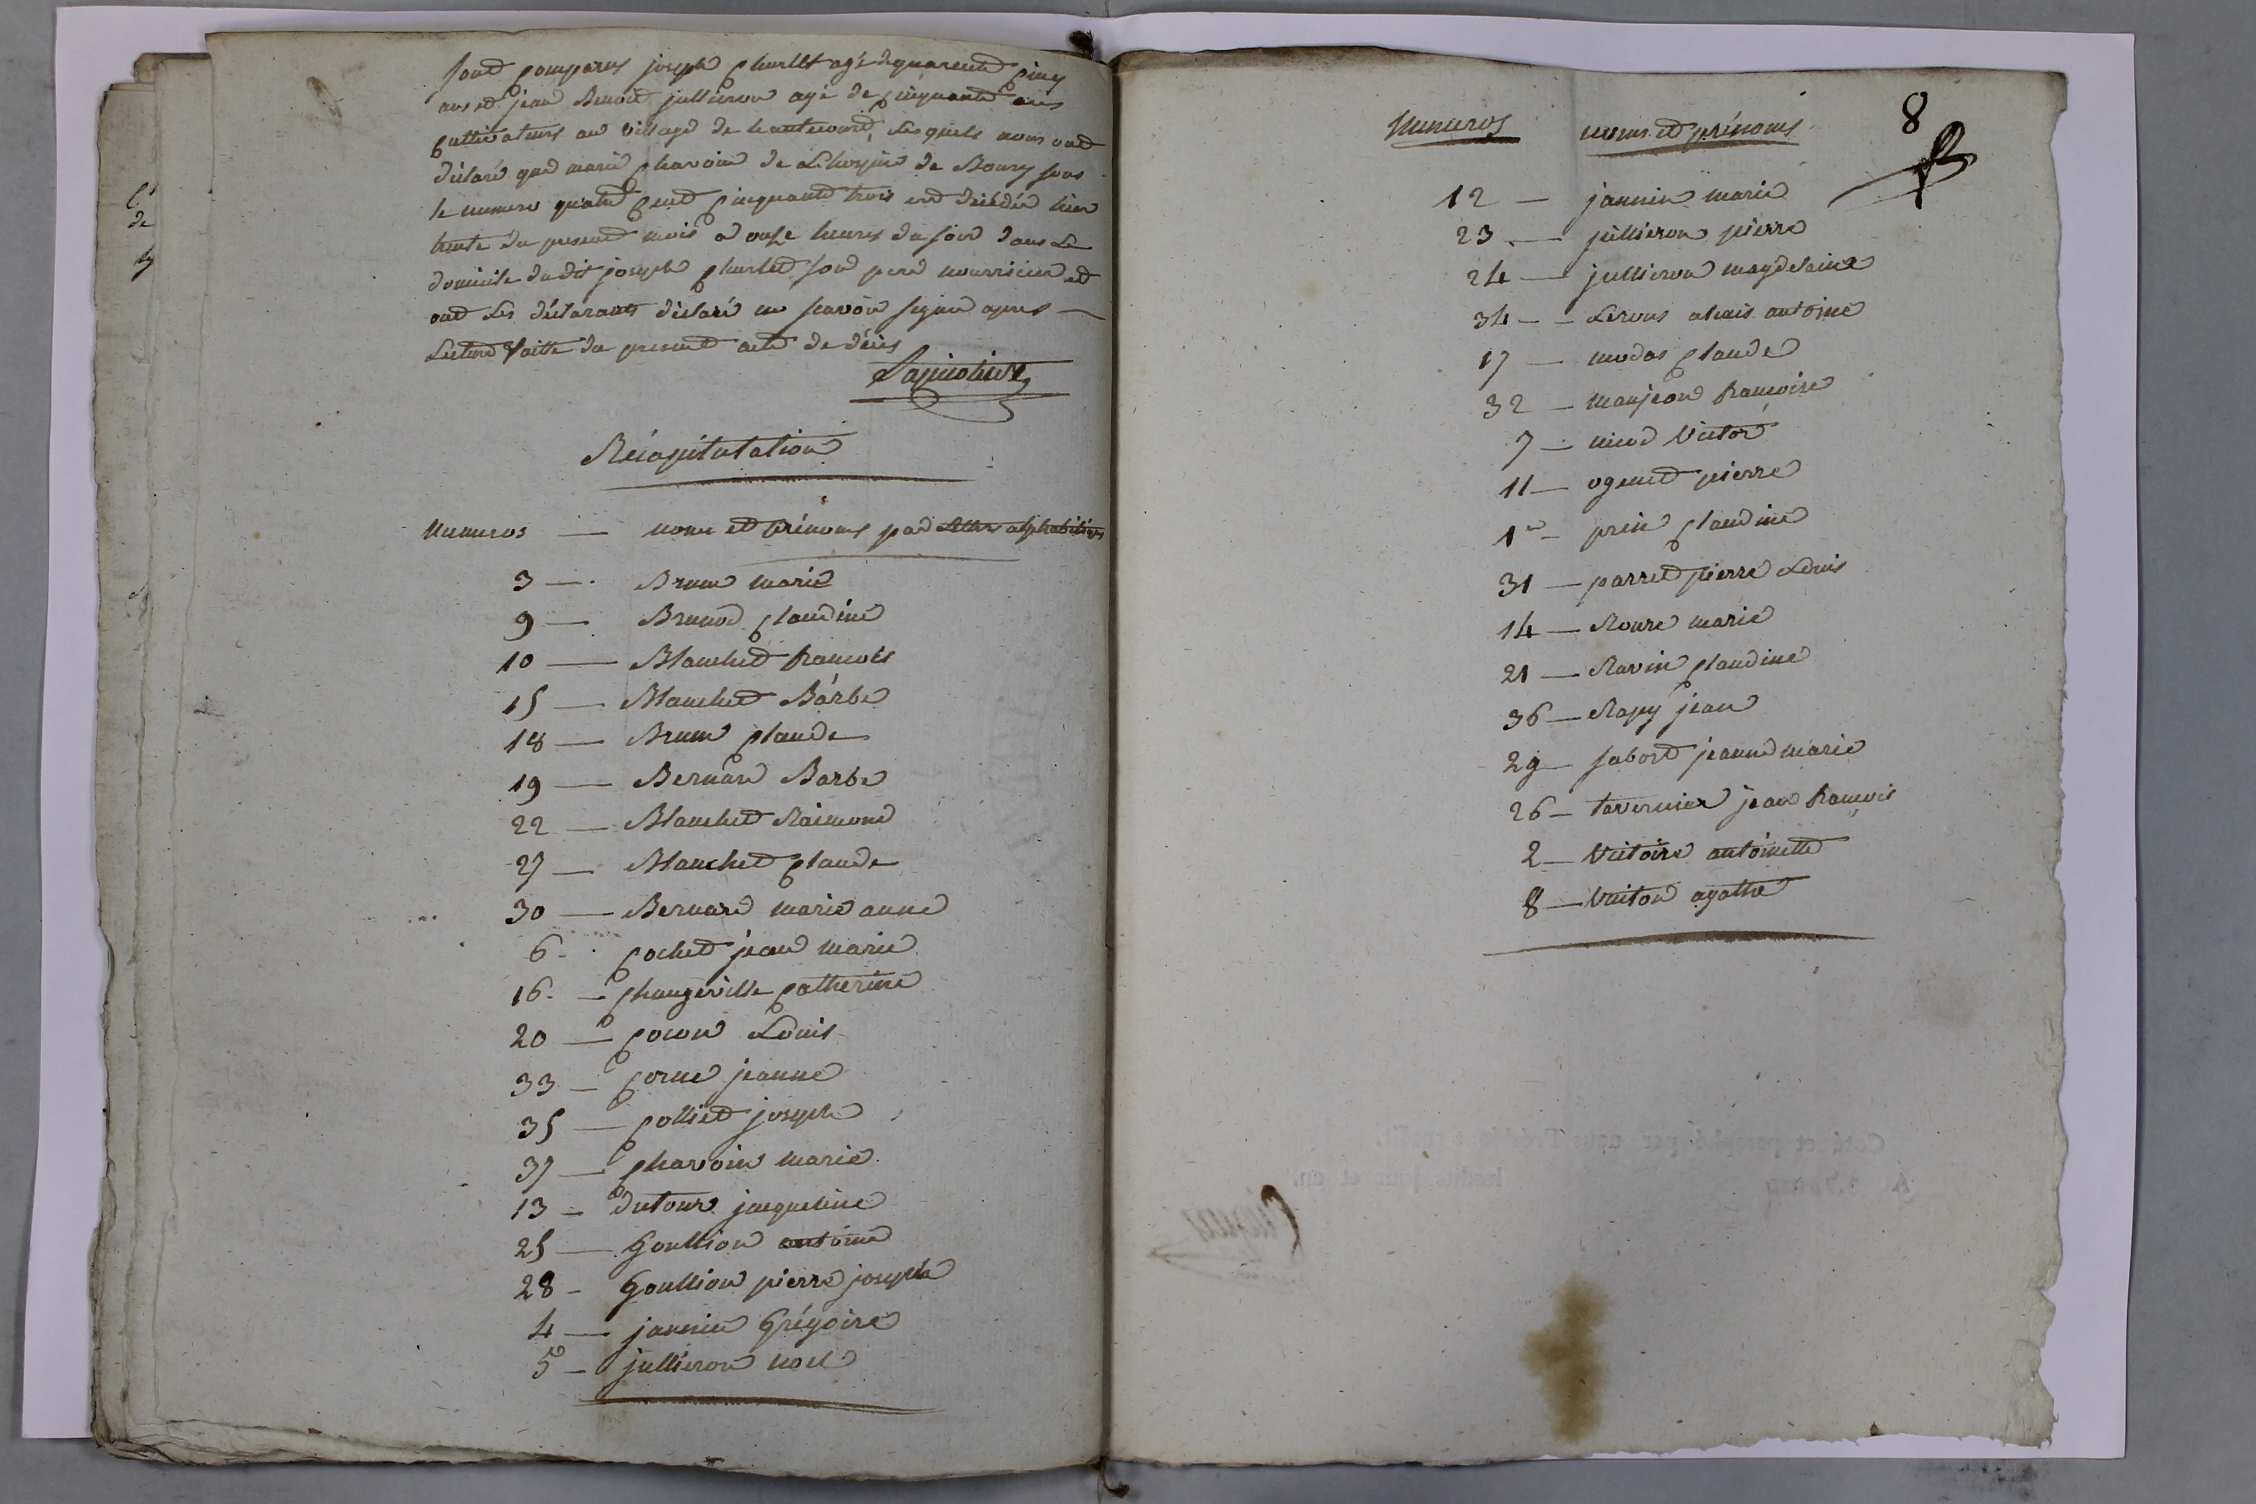 sont comparus joseph charlet agé de quarente cinq
ans et jean Benoit jullieron agé de cinquante ans
cultivateurs au village de hautecourt, Lesquels nous ont
déclaré que marie chavoin de Lhospice de Bourg sous
le numero quatre cent cinquante trois est décédée hier
trente du present mois a onse heures du soir dans Le
domicile dudit joseph charlet son pere nourricier et
ont Les déclarants déclaré ne scavoir signer apres
Lecture faitte du present acte de décès
Récapitulation
Numeros — noms et prénoms par Lettres alphabétives
3 — Brun marie
9 — Brunod claudine
10 — Blanchet francois
15 — Blanchet Barbe
18 — Brun claude
19 — Bernard Barbe
22 — Blanchet Raimond
27 — Blanchet claude
30 — Bernard marie anne
6 - cochet jean marie
16 - changeville catherine
20 — cocon Louis
33 — corne jeanne
35 — colliet joseph
37 — chavoin marie
13 — dutour jacqueline
25 — Goullion antoine
28 - Goullion pierre joseph
4 — jannin Grégoire
5 — jullieron noel
8
Numeros noms et prénoms
12 — jannin marie
23 — jullieron pierre
24 — jullieron magdelaine
34 — Lerous alexis antoine
17 — modas claude
32 — manjeon francoise
7 — nicod Victor
11 — ogened pierre
1er - prin claudine
31 — parret pierre Louis
14 — Roure marie
21 — Ravin claudine
36 — Rapy jean
29 — sabord jeanne marie
26 — tavernier jean francois
2 — Victoire antoinette
8 — Vuiton agathe